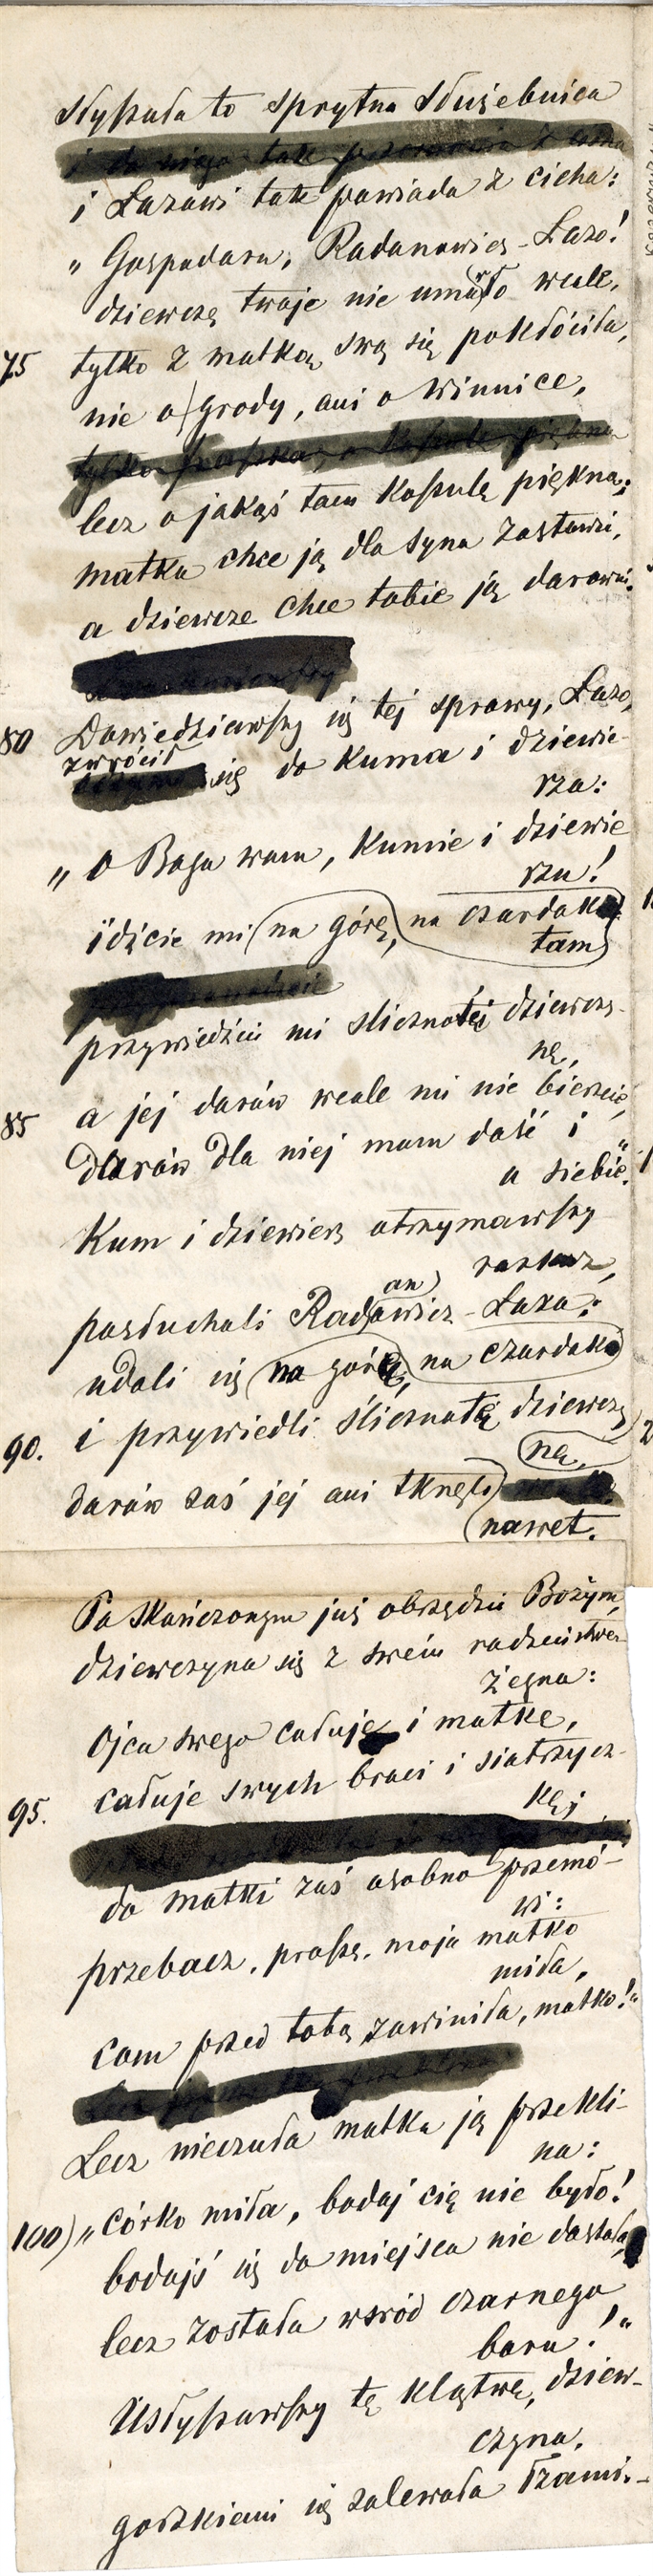 słyszała to sprytna służebnica
i Lazowi tak powiada z cicha:
„Gospodaru, Radanowicz-Lazo!
dziewczę twoje nie umarło wcale,
75 tylko z matką swą się pokłóciła,
nie o grody, ani o winnice,
lecz o jakąś tam koszulę piękną;
matka chce ją dla syna zostawić,
a dziewcze chce tobie ją darować.
80 Dowiedziawszy się tej sprawy, Lazo,
zwrócił się do kuma i dziewie-
rza:
„O Boga wam, kumie i dziewie
rzu!
idźcie mi na górę, na czardak
tam
przywiedźcie mi ślicznotę dziewczy-
nę,
85 a jej darów wcale mi nie bierzcie,
darów dla niej mam dość i
u siebie."
Kum i dziewierz otrzymawszy
rozkaz,
posłuchali Radanowicz-Laza:
udali się na górę, na czardak
90. i przywiedli ślicznotę dziewczy
nę,
darów zaś jej ani tknęli
nawet.
Po skończonym już obrzędzie Bożym,
dziewczyna się z swem rodzeństwem
żegna:
Ojca swego całuje i matkę,
95. całuje swych braci i siostrzycz-
kę;
do matki zaś osobno przemó-
wi:
przebacz, proszę, moja matko
miła,
com przed tobą zawiniła, matko!"
Lecz nieczuła matka ją przekli-
na:
100) „Córko miła, bodaj cię nie było!
bodajś się do miejsca nie dostała,
lecz została wśród czarnego
boru!"
Usłyszawszy tę klątwę, dziew-
czyna,
gorzkiemi się zalewała łzami.-